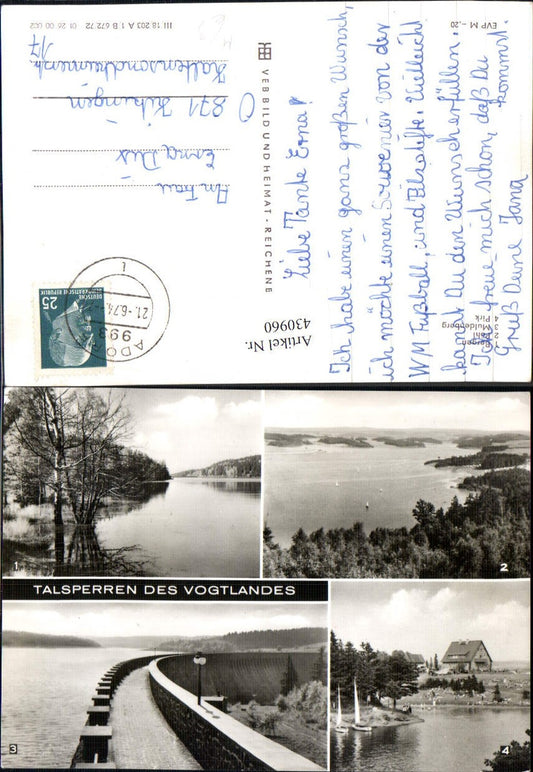 Liebe Tante Erna!
Ich habe einen ganz großen Wunsch,
ich möchte einen Souvenier von der
WM Fußball, und Filzstifte. Vielleicht
kannst Du den Wunsch erfüllen.
Ich freue mich schon, daß Du
kommst.
Gruß Deine Jana
1 Pirk
2 Pöhl
3 Muldenberg
4 Pirk
Artikel Nr.
430960
VEB BILD UND HEIMAT · REICHENBACH
III 18 203 A 1 B 672 72 01 26 00 002
EVP M -,20
An Frau
Erna
871 Kitzingen
17
DEUTSCHE
DEMOKRATISCHE REPUBLIK
25
ADORF
993
21.-6.74
1
1
2
TALSPERREN DES VOGTLANDES
3
4